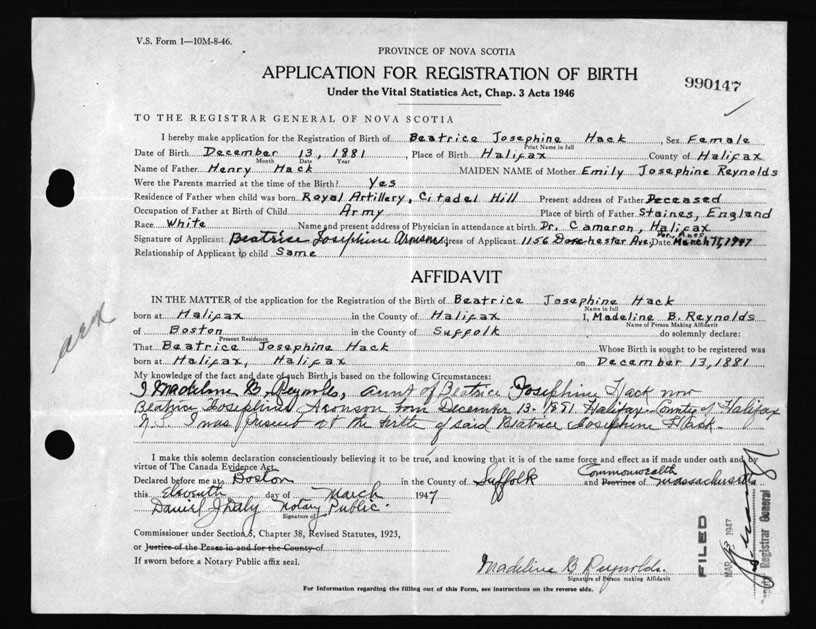 V.S. Form 1—10M-8-46.
PROVINCE OF NOVA SCOTIA
APPLICATION FOR REGISTRATION OF BIRTH
990147
Under the Vital Statistics Act, Chap. 3 Acts 1946
TO THE REGISTRAR GENERAL OF NOVA SCOTIA
I hereby make application for the Registration of Birth of Beatrice Josephine Hack, Sex Female
Print Name in full
Date of Birth December 13, 1881, Place of Birth Halifax County of Halifax
Month Date Year
Name of Father Henry Hack MAIDEN NAME of Mother Emily Josephine Reynolds
Were the Parents married at the time of the Birth? Yes
Residence of Father when child was born Royal Artillery, Citadel Hill Present address of Father Deceased
Occupation of Father at Birth of Child Army Place of birth of Father Staines, England
Race White Name and present address of Physician in attendance at birth Dr. Cameron, Halifax
Signature of Applicant Beatrice Josephine Aronson Address of Applicant 1156 Dorchester Ave, Dor. Mass Date March 11, 1947
Relationship of Applicant to child Same
AFFIDAVIT
IN THE MATTER of the application for the Registration of the Birth of Beatrice Josephine Hack
Name in full
born at Halifax in the County of Halifax I, Madeline B. Reynolds
Name of Person Making Affidavit
of Boston in the County of Suffolk do solemnly declare:
Present Residence
That Beatrice Josephine Hack Whose Birth is sought to be registered was
born at Halifax, Halifax on December 13, 1881
My knowledge of the fact and date of such Birth is based on the following Circumstances:
I Madeline B. Reynolds, aunt of Beatrice Josephine Hack now
Beatrice Josephine Aronson born December 13- 1881 Halifax County of Halifax
N.S. I was present at the birth of said Beatrice Josephine Hack.
I make this solemn declaration conscientiously believing it to be true, and knowing that it is of the same force and effect as if made under oath and by
virtue of The Canada Evidence Act.
Declared before me at Boston in the County of Suffolk and Province of Commonwealth Massachusetts
this Eleventh day of March 1947
Daniel J Daly Notary Public.
Signature of
Commissioner under Section 5, Chapter 38, Revised Statutes, 1923,
or Justice of the Peace in and for the County of
If sworn before a Notary Public affix seal.
Madeline B Reynolds.
Signature of Person making Affidavit
For Information regarding the filling out of this Form, see instructions on the reverse side.
FILED
MAR 1947
Registrar General